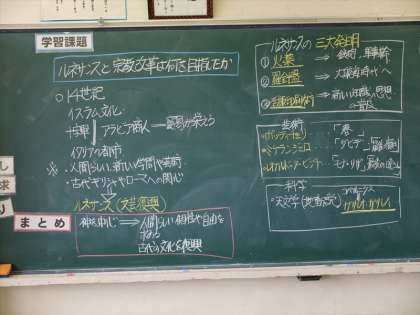 学習課題
ルネサンスと宗教改革は何を目指したか
○14世紀
イスラム文化
アラビア商人 → 貿易が栄える
イタリアの都市
※・人間らしい、新しい学問や芸術
・古代ギリシャやローマへの関心
ルネサンス(文芸復興)
まとめ
神が中心 ⇒ 人間らしい個性や自由を
求める
古代の文化を復興
ルネサンスの三大発明
① 火薬 → 鉄砲、軍事術
② 羅針盤 → 大航海時代へ
③ 活版印刷術 → 新しい知識、思想
の普及
芸術
・ボッティチェリ 「春」
・ミケランジェロ 「ダビデ」
・レオナルド・ダ・ビンチ 「モナ・リザ」
科学
・天文学(地動説) コペルニクス
ガリレオ・ガリレイ